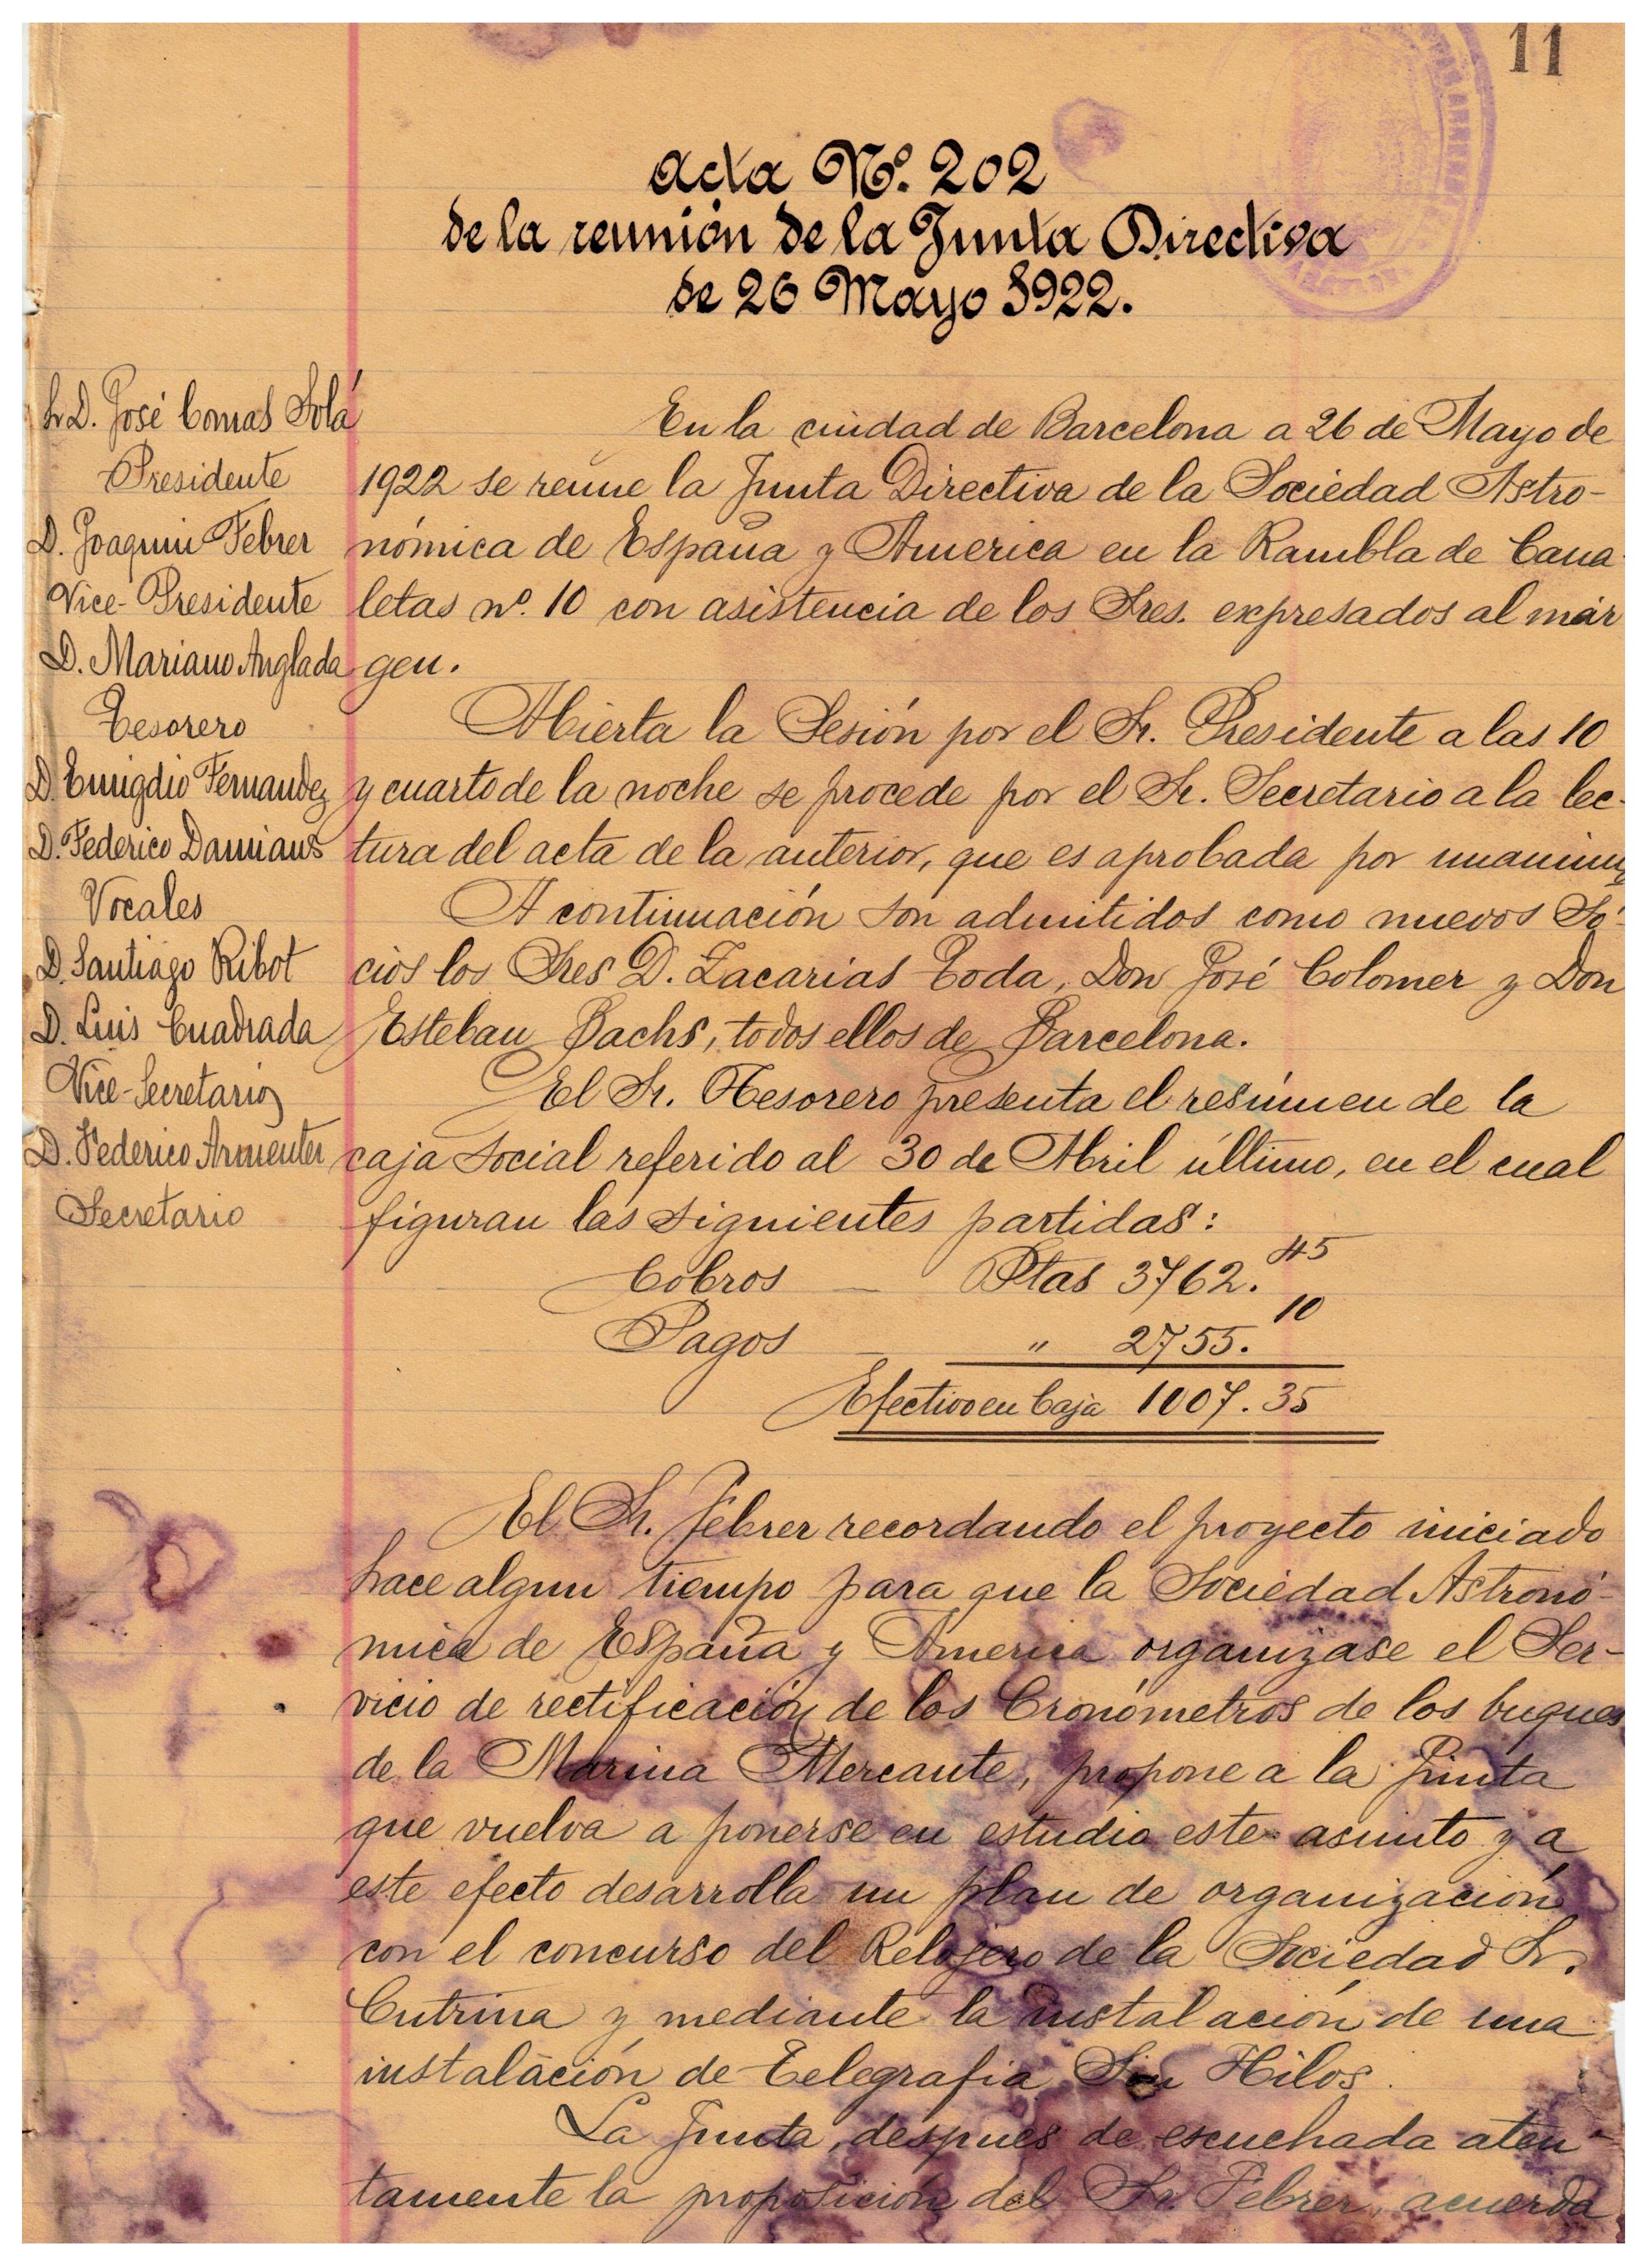 11
Acta Nº. 202
de la reunión de la Junta Directiva
de 26 Mayo 1922.
Sr D. José Comas Solá
Presidente
D. Joaquin Febrer
Vice-Presidente
D. Mariano Anglada
Tesorero
D. Emigdio Fernandez
D. Federico Damians
Vocales
D. Santiago Ribot
D. Luis Cuadrada
Vice-Secretario
D. Federico Armenter
Secretario
En la ciudad de Barcelona a 26 de Mayo de
1922 se reune la Junta Directiva de la Sociedad Astro-
nómica de España y America en la Rambla de Cana-
letas nº. 10 con asistencia de los Sres. expresados al már
gen.
Abierta la Sesión por el Sr. Presidente a las 10
y cuarto de la noche se procede por el Sr. Secretario a la lec-
tura del acta de la anterior, que es aprobada por
A continuación son admitidos como nuevos Só-
cios los Sres D. Zacarias Toda, Don José Colomer y Don
Esteban Bachs, todos ellos de Barcelona.
El Sr. Tesorero presenta el resúmen de la
caja social referido al 30 de Abril último, en el cual
figuran las siguientes partidas:
Cobros — Ptas 3762.45
Pagos — " 2755.10
Efectivo en Caja 1007.35
El Sr. Febrer recordando el proyecto iniciado
hace algun tiempo para que la Sociedad Astronó-
mica de España y America organizase el Ser-
vicio de rectificación de los Cronómetros de los buques
de la Marina Mercante, propone a la Junta
que vuelva a ponerse en estudio este asunto y a
este efecto desarrolla un plan de organización
con el concurso del Relojero de la Sociedad Sr.
Cutrina y mediante la instalación de una
instalación de Telegrafia Sin Hilos.
La Junta, despues de escuchada aten-
tamente la proposición del Sr. Febrer, acuerda